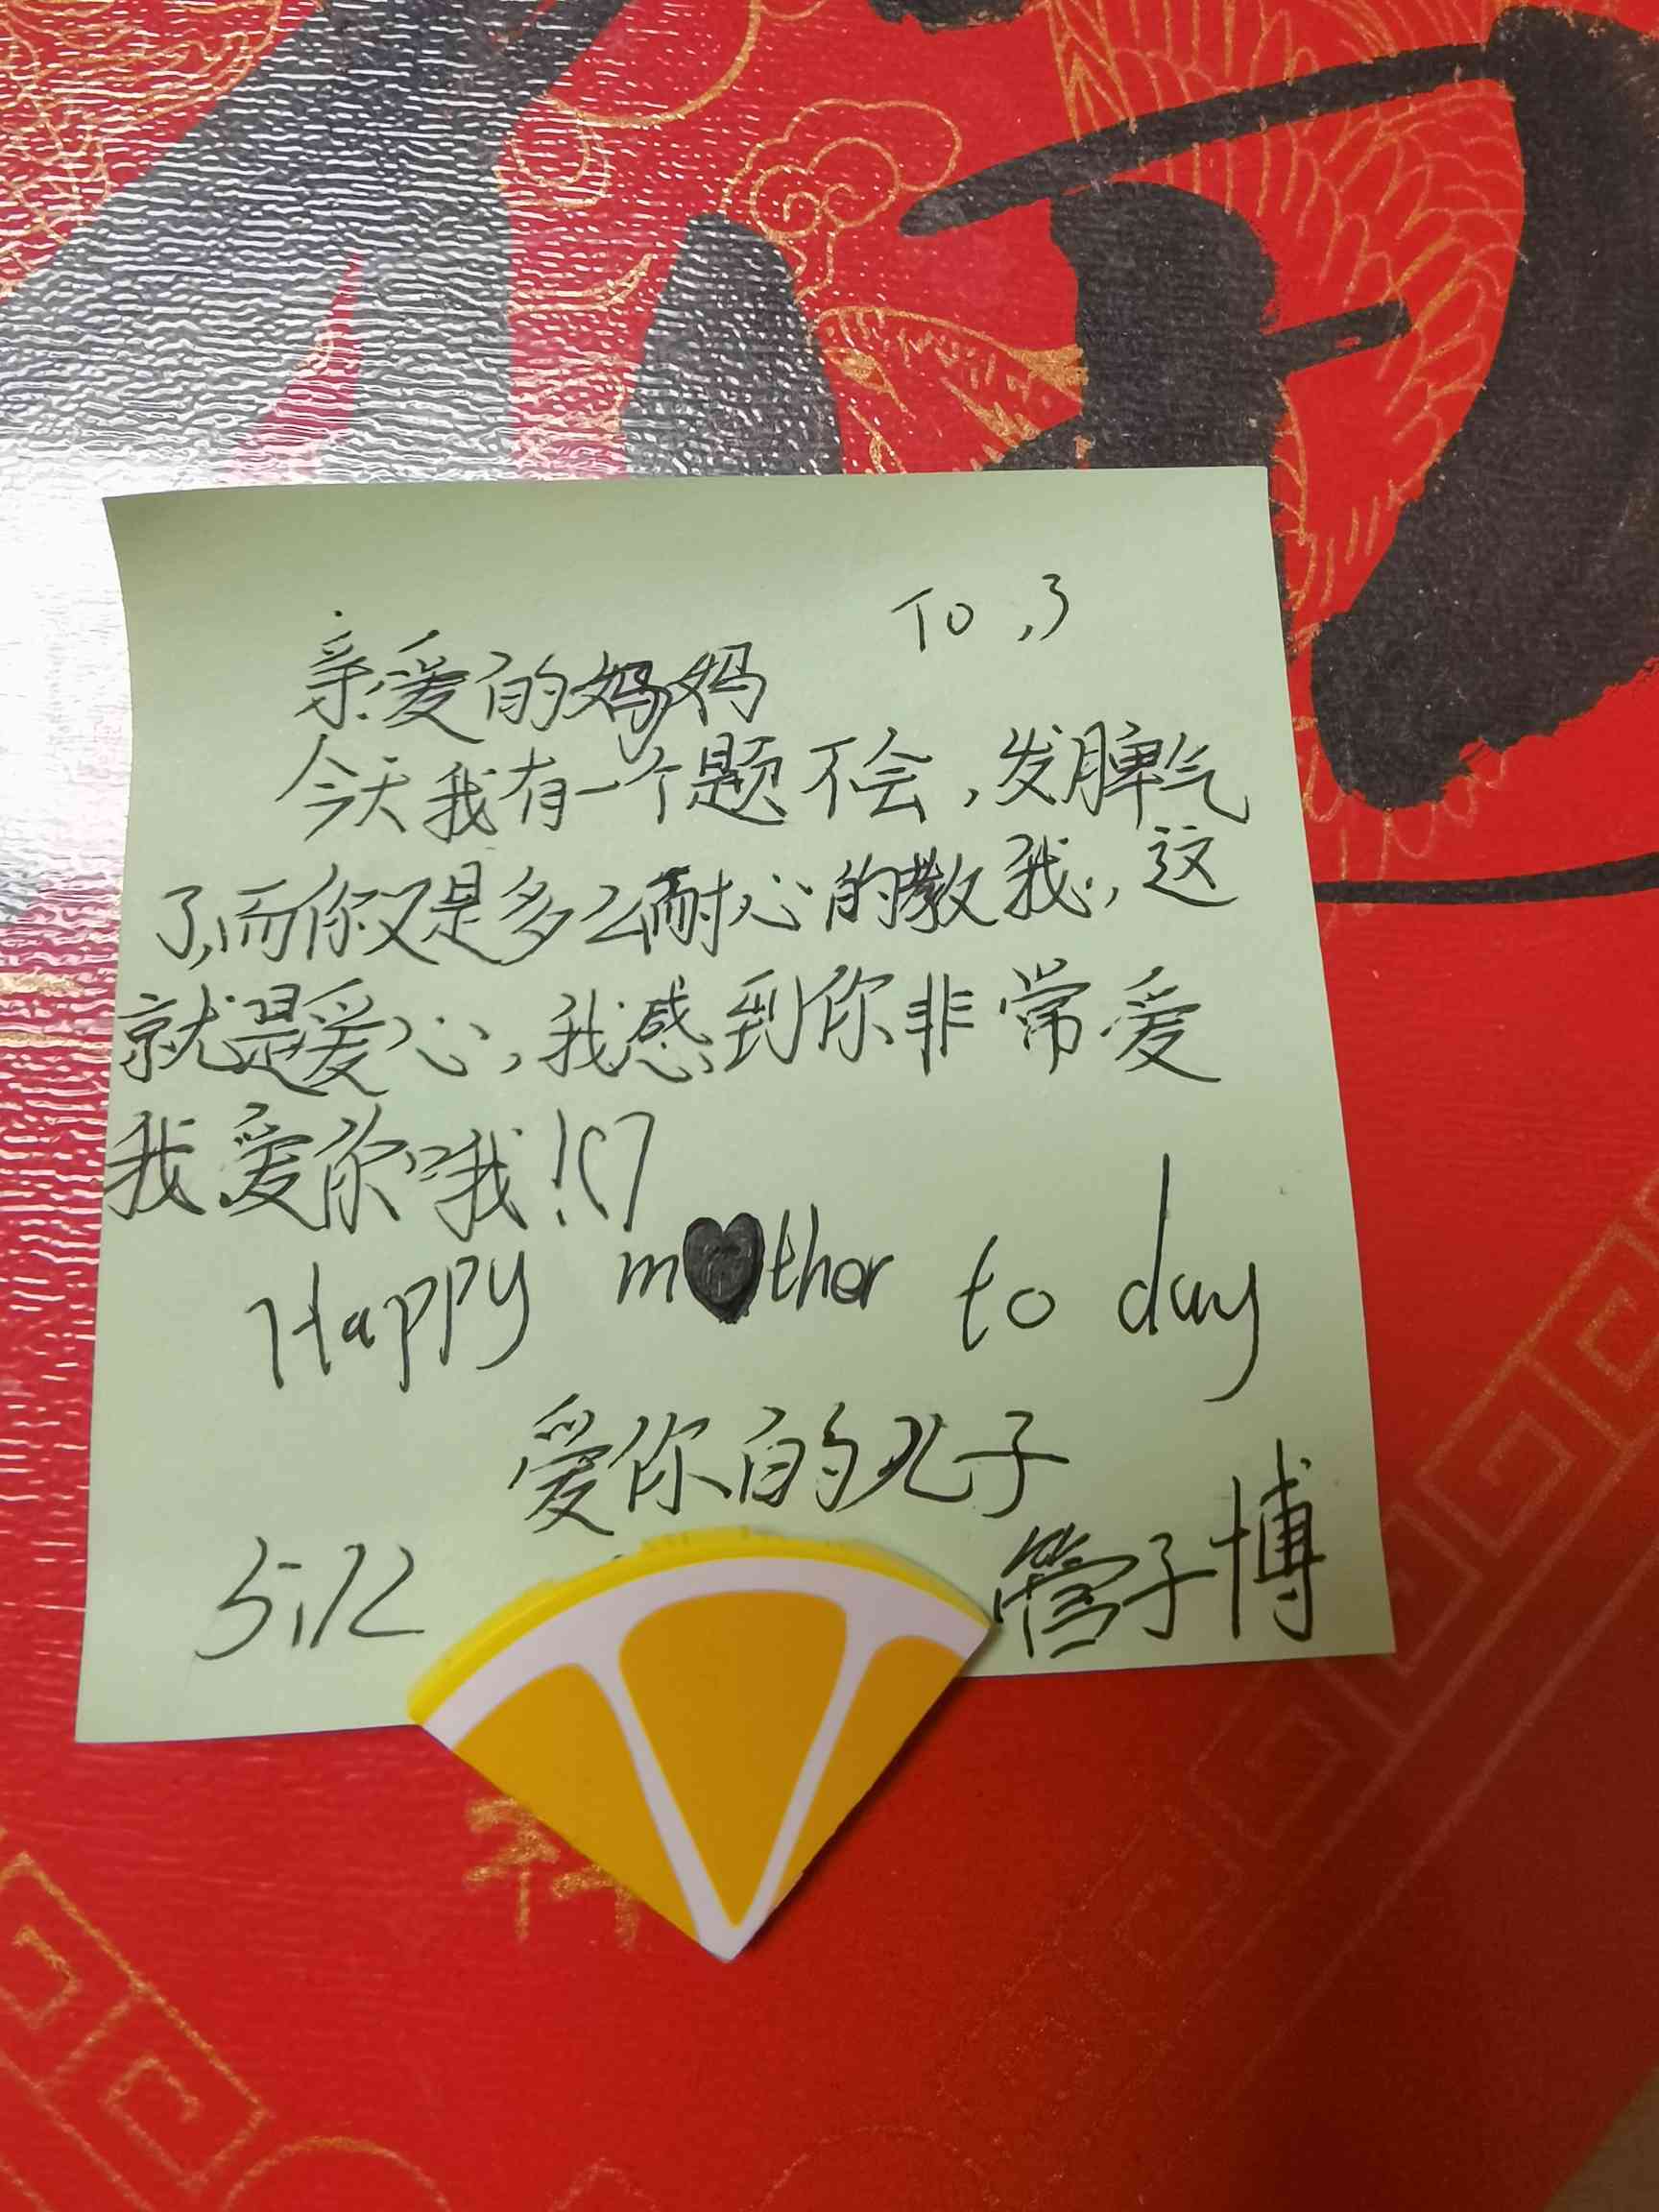 To,3
亲爱的妈妈
今天我有一个题不会,发脾气
了,而你又是多么耐心的教我,这
就是爱心,我感到你非常爱
我爱你哦!
Happy m♥ther to day
爱你的儿子
5.12 管子博